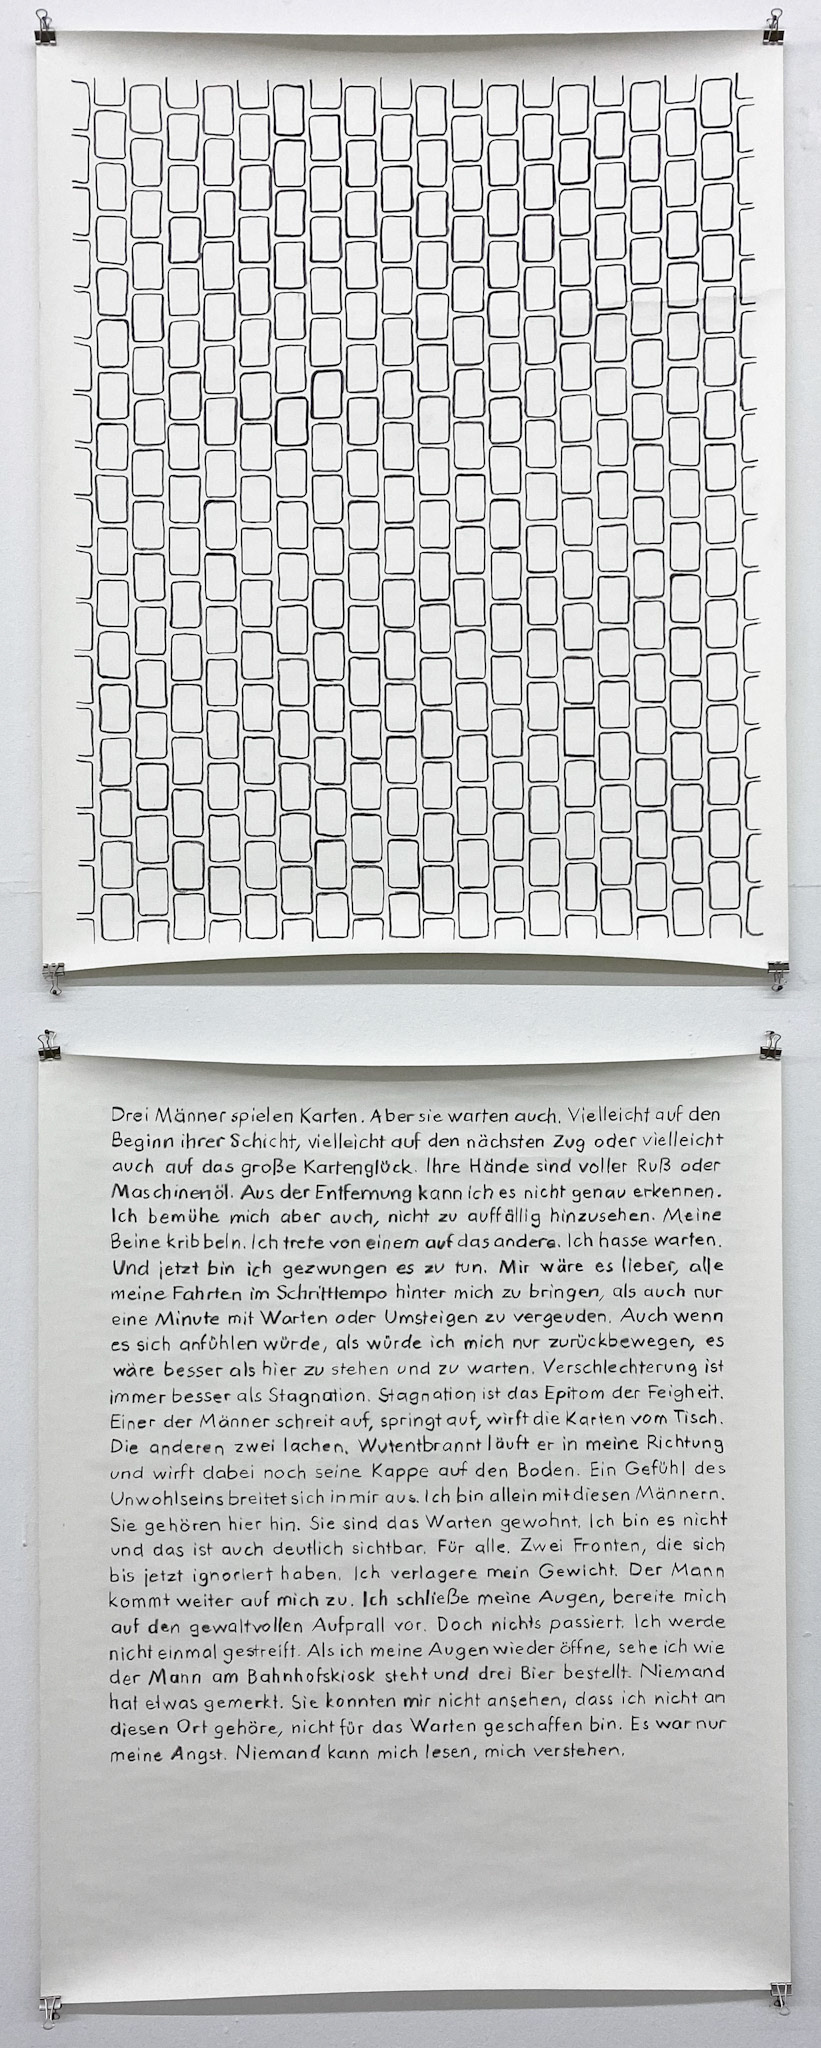 Drei Männer spielen Karten. Aber sie warten auch. Vielleicht auf den
Beginn ihrer Schicht, vielleicht auf den nächsten Zug oder vielleicht
auch auf das große Kartenglück. Ihre Hände sind voller Ruß oder
Maschinenöl. Aus der Entfernung kann ich es nicht genau erkennen.
Ich bemühe mich aber auch, nicht zu auffällig hinzusehen. Meine
Beine kribbeln. Ich trete von einem auf das andere. Ich hasse warten.
Und jetzt bin ich gezwungen es zu tun. Mir wäre es lieber, alle
meine Fahrten im Schritttempo hinter mich zu bringen, als auch nur
eine Minute mit Warten oder Umsteigen zu vergeuden. Auch wenn
es sich anfühlen würde, als würde ich mich nur zurückbewegen, es
wäre besser als hier zu stehen und zu warten. Verschlechterung ist
immer besser als Stagnation. Stagnation ist das Epitom der Feigheit.
Einer der Männer schreit auf, springt auf, wirft die Karten vom Tisch.
Die anderen zwei lachen. Wutentbrannt läuft er in meine Richtung
und wirft dabei noch seine Kappe auf den Boden. Ein Gefühl des
Unwohlseins breitet sich in mir aus. Ich bin allein mit diesen Männern.
Sie gehören hier hin. Sie sind das Warten gewohnt. Ich bin es nicht
und das ist auch deutlich sichtbar. Für alle. Zwei Fronten, die sich
bis jetzt ignoriert haben. Ich verlagere mein Gewicht. Der Mann
kommt weiter auf mich zu. Ich schließe meine Augen, bereite mich
auf den gewaltvollen Aufprall vor. Doch nichts passiert. Ich werde
nicht einmal gestreift. Als ich meine Augen wieder öffne, sehe ich wie
der Mann am Bahnhofskiosk steht und drei Bier bestellt. Niemand
hat etwas gemerkt. Sie konnten mir nicht ansehen, dass ich nicht an
diesen Ort gehöre, nicht für das Warten geschaffen bin. Es war nur
meine Angst. Niemand kann mich lesen, mich verstehen.